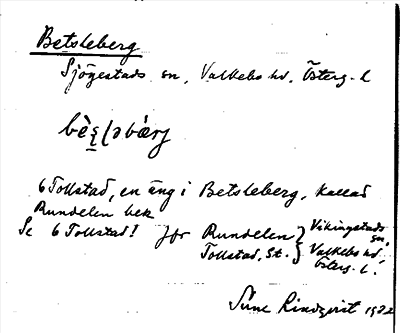 Betsleberg
Sjögestads sn, Valkebo hd, Österg. l
6 Tollstad, en äng i Betsleberg, kallad
Rundelen bek
Se 6 Tollstad! Jfr Rundelen } Vikingstads sn,
Tollstad, St. } Valkebo hd,
Österg. l.
Sune Lindqvist 1922